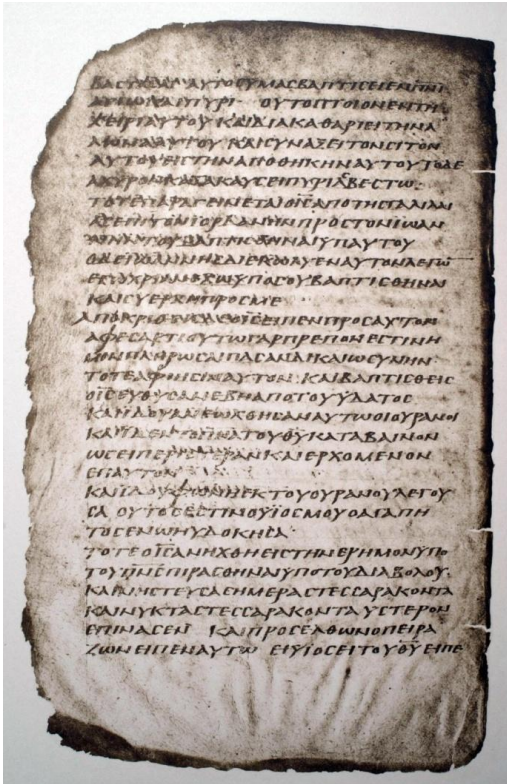 ΒΑϹΤΑϹΑΙ ΑΥΤΟϹΥΜΑϹΒΑΠΤΙϹΕΙΕΝΠΝΙ
ΑΓΙΩΚΑΙΠΥΡΙ· ΟΥΤΟΠΤΟΙΟΝΕΝΤΗ
ΧΕΙΡΙΑΥΤΟΥΚΑΙΔΙΑΚΑΘΑΡΙΕΙΤΗΝΑ
ΛΩΝΑΑΥΤΟΥ ΚΑΙϹΥΝΑΞΕΙΤΟΝϹΙΤΟΝ
ΑΥΤΟΥΕΙϹΤΗΝΑΠΟΘΗΚΗΝΑΥΤΟΥΤΟΔΕ
ΑΧΥΡΟΝΚΑΤΑΚΑΥϹΕΙΠΥΡΙΑϹΒΕϹΤΩ·
ΤΟΤΕΠΑΡΑΓΕΙΝΕΤΑΙΟΙϹΑΠΟΤΗϹΓΑΛΙΛΑΙ
ΑϹΕΠΙΤΟΝΙΟΡΔΑΝΗΝΠΡΟϹΤΟΝΙΩΑΝ
ΝΗΝΤΟΥΒΑΠΤΙϹΘΗΝΑΙΥΠΑΥΤΟΥ
ΟΔΕΙΩΑΝΝΗϹΔΙΕΚΩΛΥΕΝΑΥΤΟΝΛΕΓΩ
ΕΓΩΧΡΙΑΝΕΧΩΥΠΟϹΟΥΒΑΠΤΙϹΘΗΝΑΙ
ΚΑΙϹΥΕΡΧΗΠΡΟϹΜΕ
ΑΠΟΚΡΙΘΕΙϹΔΕΟΙϹΕΙΠΕΝΠΡΟϹΑΥΤΟΝ
ΑΦΕϹΑΡΤΙΟΥΤΩΓΑΡΠΡΕΠΟΝΕϹΤΙΝΗ
ΜΙΝΠΛΗΡΩϹΑΙΠΑϹΑΝΔΙΚΑΙΩϹΥΝΗΝ·
ΤΟΤΕΑΦΙΗϹΙΝΑΥΤΟΝ· ΚΑΙΒΑΠΤΙϹΘΕΙϹ
ΟΙϹΕΥΘΥϹΑΝΕΒΗΑΠΟΤΟΥΥΔΑΤΟϹ
ΚΑΙΙΔΟΥΑΝΕΩΧΘΗϹΑΝΑΥΤΩΟΙΟΥΡΑΝΟΙ
ΚΑΙΙΔΕΝΤΟΠΝΑΤΟΥΘΥΚΑΤΑΒΑΙΝΟΝ
ΩϹΕΙΠΕΡΙϹΤΕΡΑΝΚΑΙΕΡΧΟΜΕΝΟΝ
ΕΠΑΥΤΟΝ
ΚΑΙΙΔΟΥΦΩΝΗΕΚΤΟΥΟΥΡΑΝΟΥΛΕΓΟΥ
ϹΑ ΟΥΤΟϹΕϹΤΙΝΟΥΙΟϹΜΟΥΟΑΓΑΠΗ
ΤΟϹΕΝΩΗΥΔΟΚΗϹΑ·
ΤΟΤΕΟΙϹΑΝΗΧΘΗΕΙϹΤΗΝΕΡΗΜΟΝΥΠΟ
ΤΟΥΠΝϹΠΙΡΑϹΘΗΝΑΙΥΠΟΤΟΥΔΙΑΒΟΛΟΥ·
ΚΑΙΝΗϹΤΕΥϹΑϹΗΜΕΡΑϹΤΕϹϹΑΡΑΚΟΝΤΑ
ΚΑΙΝΥΚΤΑϹΤΕϹϹΑΡΑΚΟΝΤΑΥϹΤΕΡΟΝ
ΕΠΙΝΑϹΕΝ ΚΑΙΠΡΟϹΕΛΘΩΝΟΠΕΙΡΑ
ΖΩΝΕΙΠΕΝΑΥΤΩ ΕΙΥΙΟϹΕΙΤΟΥΘΥΕΙΠΕ